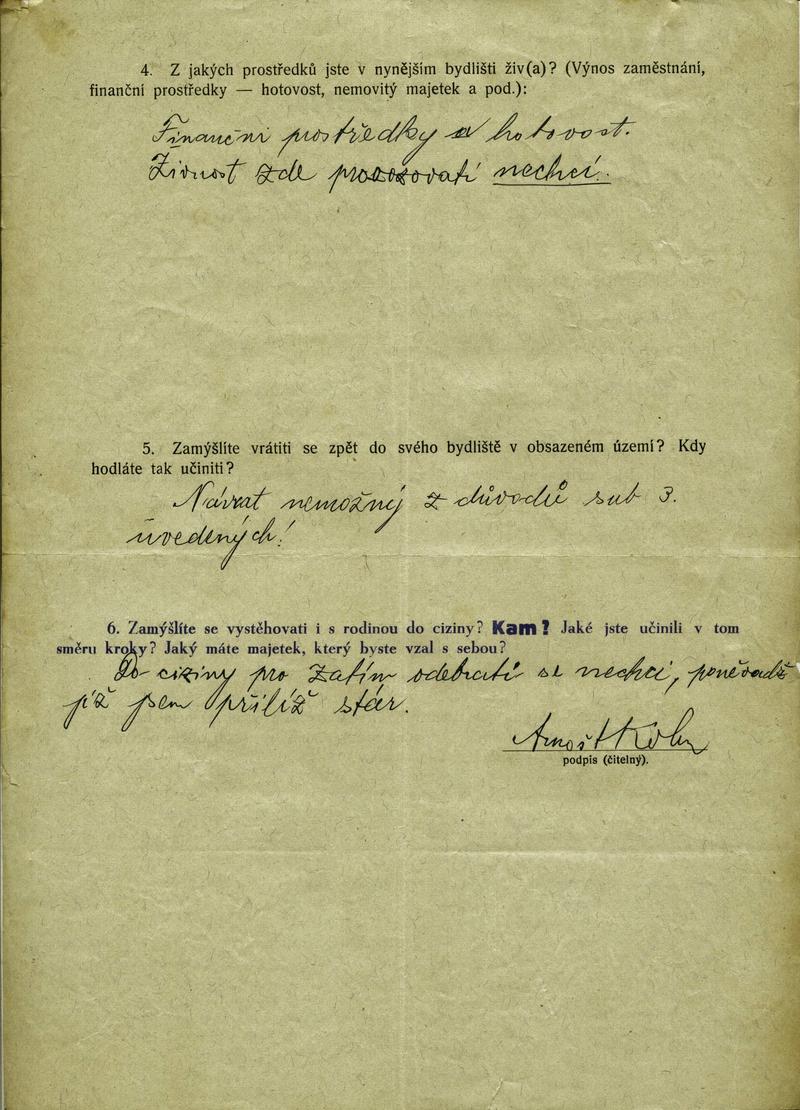 4. Z jakých prostředků jste v nynějším bydlišti živ(a)? (Výnos zaměstnání,
finanční prostředky — hotovost, nemovitý majetek a pod.):
Finanční prostředky a hotovost.
Živnost zde provozovati nechci.
5. Zamýšlíte vrátiti se zpět do svého bydliště v obsazeném území? Kdy
hodláte tak učiniti?
Návrat nemožný z důvodů sub 3.
uvedených!
6. Zamýšlíte se vystěhovati i s rodinou do ciziny? Kam? Jaké jste učinili v tom
směru kroky? Jaký máte majetek, který byste vzal s sebou?
Do ciziny pro zatím odebrati se nechci, poněvadž
již jsem příliš stár.
Arnošt Kohn
podpis (čitelný).